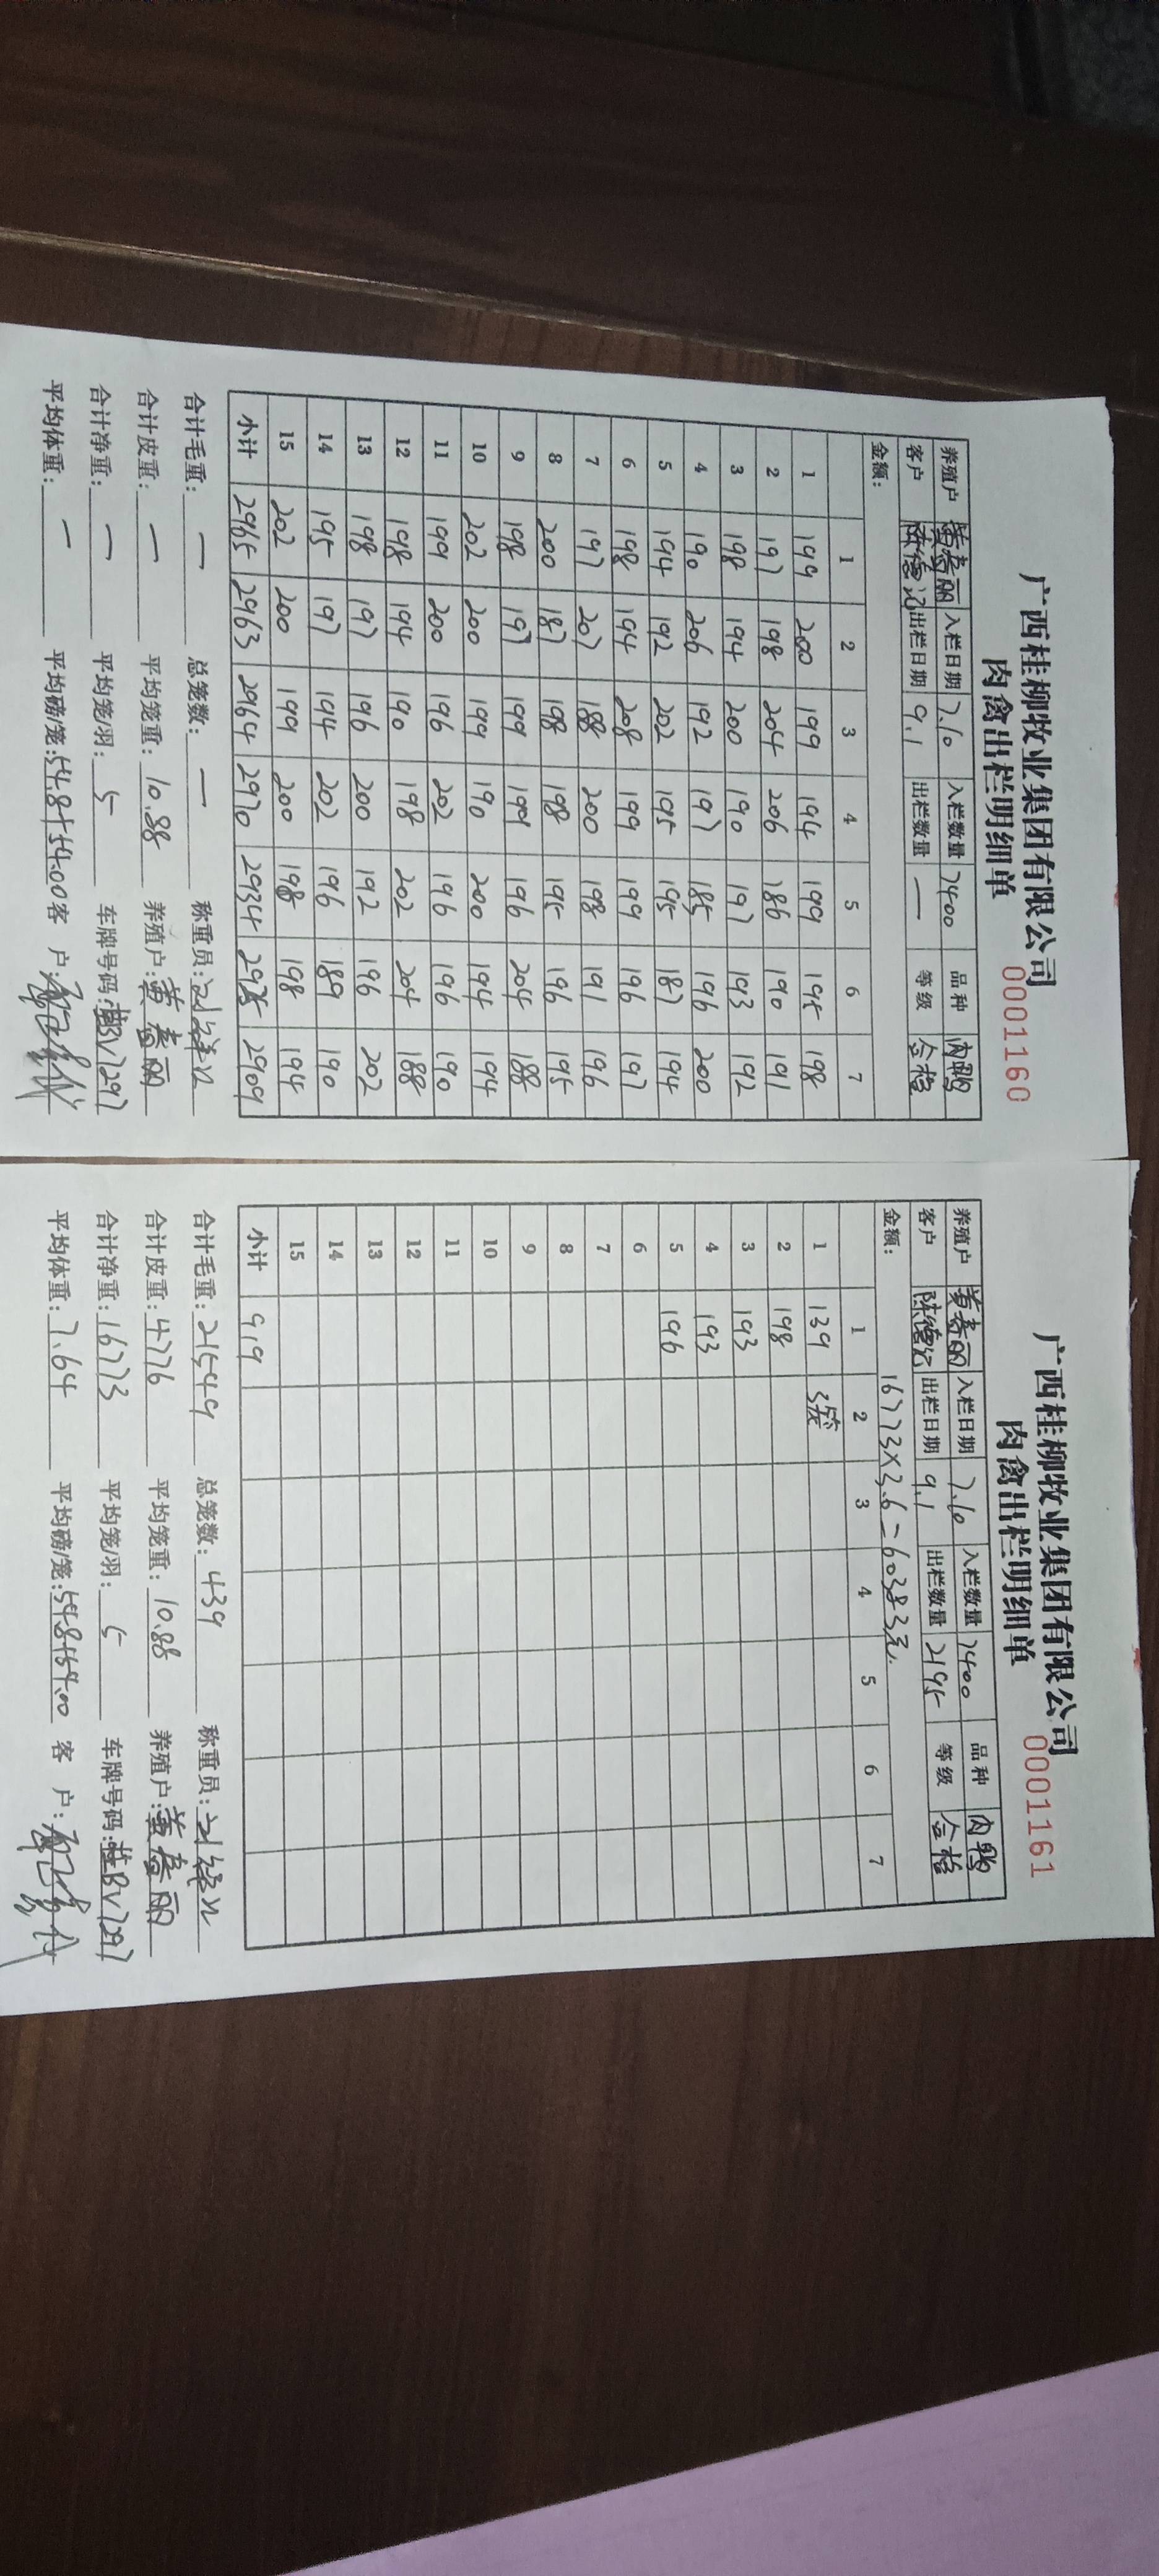 广西桂柳牧业集团有限公司
肉禽出栏明细单 0001160
养殖户 黄寿丽 入栏日期 7.10 入栏数量 7400 品种 肉鸭
客户 陈德记 出栏日期 9.1 出栏数量 — 等级 合格
金额:
1 2 3 4 5 6 7
1 199 200 199 194 199 195 198
2 197 198 204 206 186 190 191
3 198 194 200 190 197 193 192
4 190 206 192 197 185 196 200
5 194 192 202 195 195 187 194
6 198 194 208 199 199 196 197
7 197 207 188 200 198 191 196
8 200 187 198 198 195 196 195
9 198 197 199 199 196 204 188
10 202 200 199 190 200 194 194
11 199 200 196 202 196 196 190
12 198 194 190 198 202 204 188
13 198 197 196 200 192 196 202
14 195 197 194 202 196 189 190
15 202 200 199 200 198 198 194
小计 2965 2963 2964 2970 2934 2925 2909
合计毛重: — 总笼数: — 称重员:
合计皮重: — 平均笼重: 10.88 养殖户: 黄寿丽
合计净重: — 平均笼/羽: 5 车牌号码: 桂BV7297
平均体重: — 平均磅/笼: 54.8+54.00 客 户:
广西桂柳牧业集团有限公司
肉禽出栏明细单 0001161
养殖户 黄寿丽 入栏日期 7.10 入栏数量 7400 品种 肉鸭
客户 陈德记 出栏日期 9.1 出栏数量 2195 等级 合格
金额: 16773×3.6=60383元.
1 2 3 4 5 6 7
1 139 3笼
2 198
3 193
4 193
5 196
6
7
8
9
10
11
12
13
14
15
小计 919
合计毛重: 21549 总笼数: 439 称重员:
合计皮重: 4776 平均笼重: 10.88 养殖户: 黄寿丽
合计净重: 16773 平均笼/羽: 5 车牌号码: 桂BV7297
平均体重: 7.64 平均磅/笼: 54.8+54.00 客 户: